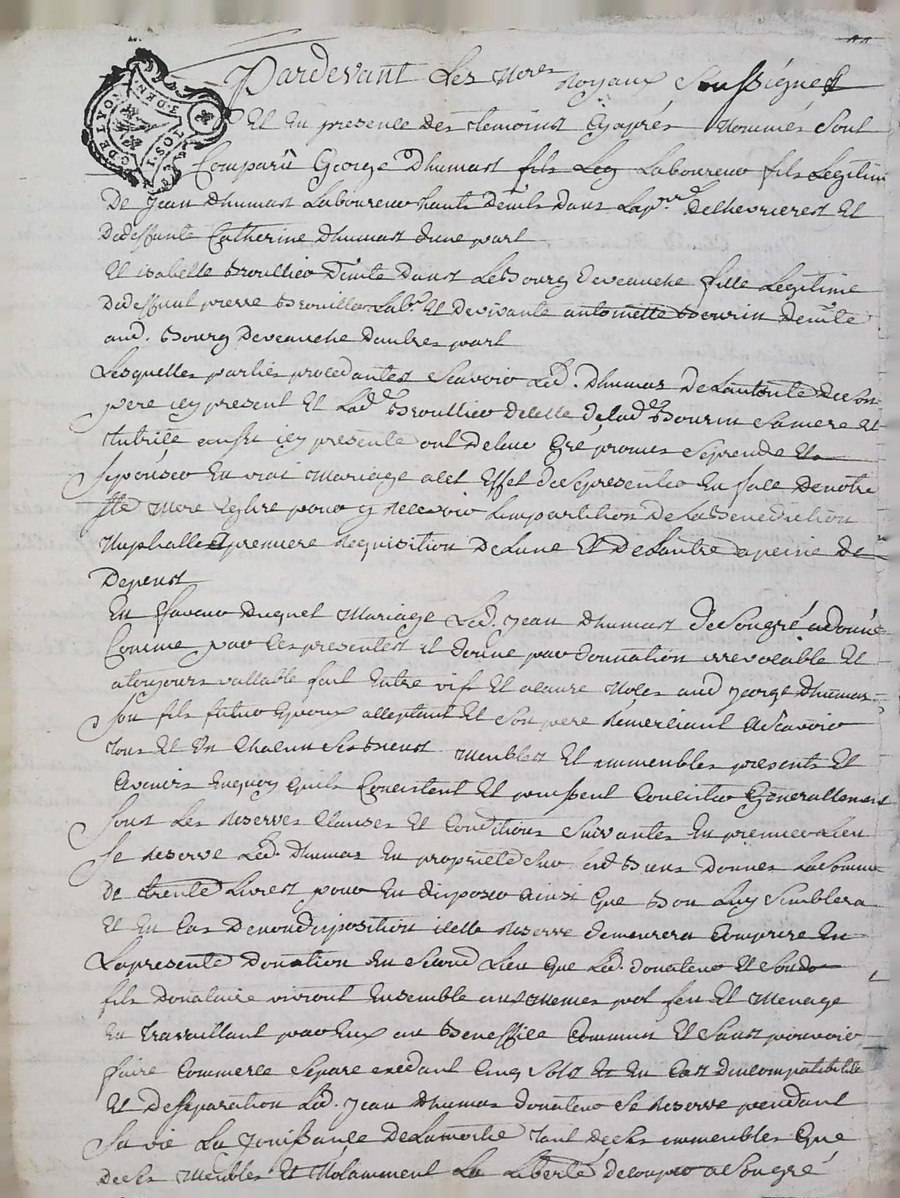 G. DE LYON
1. SOL
3. DEN.
Pardevant Les No.res Royaux Soussignes
Et En presence des temoins Cyaprés Nommés Sont
Comparû George Dhumas fils Leg Laboureur fils Legitime
De Jean Dhumas Laboureur habitants dans Lap.rre De chevrieres Et
Dedeffunte Catherine Dhumas dune part
Et isabelle Brouillier dans LeBourg deveauche fille Legitime
dedeffunt pierre Brouiller Lab.r Et devivante antoinette Bourin
aud. Bourg Deveauche dautres part
Lesquelles parties procedantes Scavoir Led. Dhumas De Lautorité deson
pere icy present Et Lad.e Brouillier decelle delad.e Bourin Samere Et
tutrice aussi icy presente ont deleur Gré promis Seprendre Et
Seponser En vrai Mariage a cet Effet deSepresenter En face Denotre
S.te Mere Eglise pour y Recevoir Limpartition De LaBenediction
Nuptialle apremiere Requisition De Lune Et De Lautre apeine de
Depens
En faveur Duquel Mariage Led. Jean Dhumas deSongré adonné
Comme par Ces presentes il donne par donnation irrevocable Et
atoujours vallable fait Entre vifs Et acause Noces aud george Dhumas
Son fils futur Epoux acceptant Et Son pere Remerciant aScavoir
tous Et Un Chacun Ses Biens Meubles Et immeubles presents Et
avenirs Enquoy quils Consistent Et puissent Consister Generallement
Sous Les Reserves Clauses Et Conditions Suivantes En premier Lieu
Se Reserve Led. Dhumas En propriete Sur Biens Donnes LaSomme
de trente Livres pour En disposer ainsi que Bon Luy Semblera
Et En Cas Denondisposition icelle Reserve demeurera Comprise En
Lapresente Donation En Second Lieu que Led. donateur Et Sond
fils Donataire vivront Ensemble a mesmes pot feu Et Menage
En travaillant par Eux au Beneffice Commun Et Sans pouvoir
faire Commerce Separé Exedant Cinq Sols Et En Cas dincompatibilité
Et deSeparation Led. Jean Dhumas donateur Se Reserve pendant
Sa vie La Jouissance De Lamoitié tant desEs immeubles Que
desEs Meubles Et Notamment La Liberté decouper aSongré